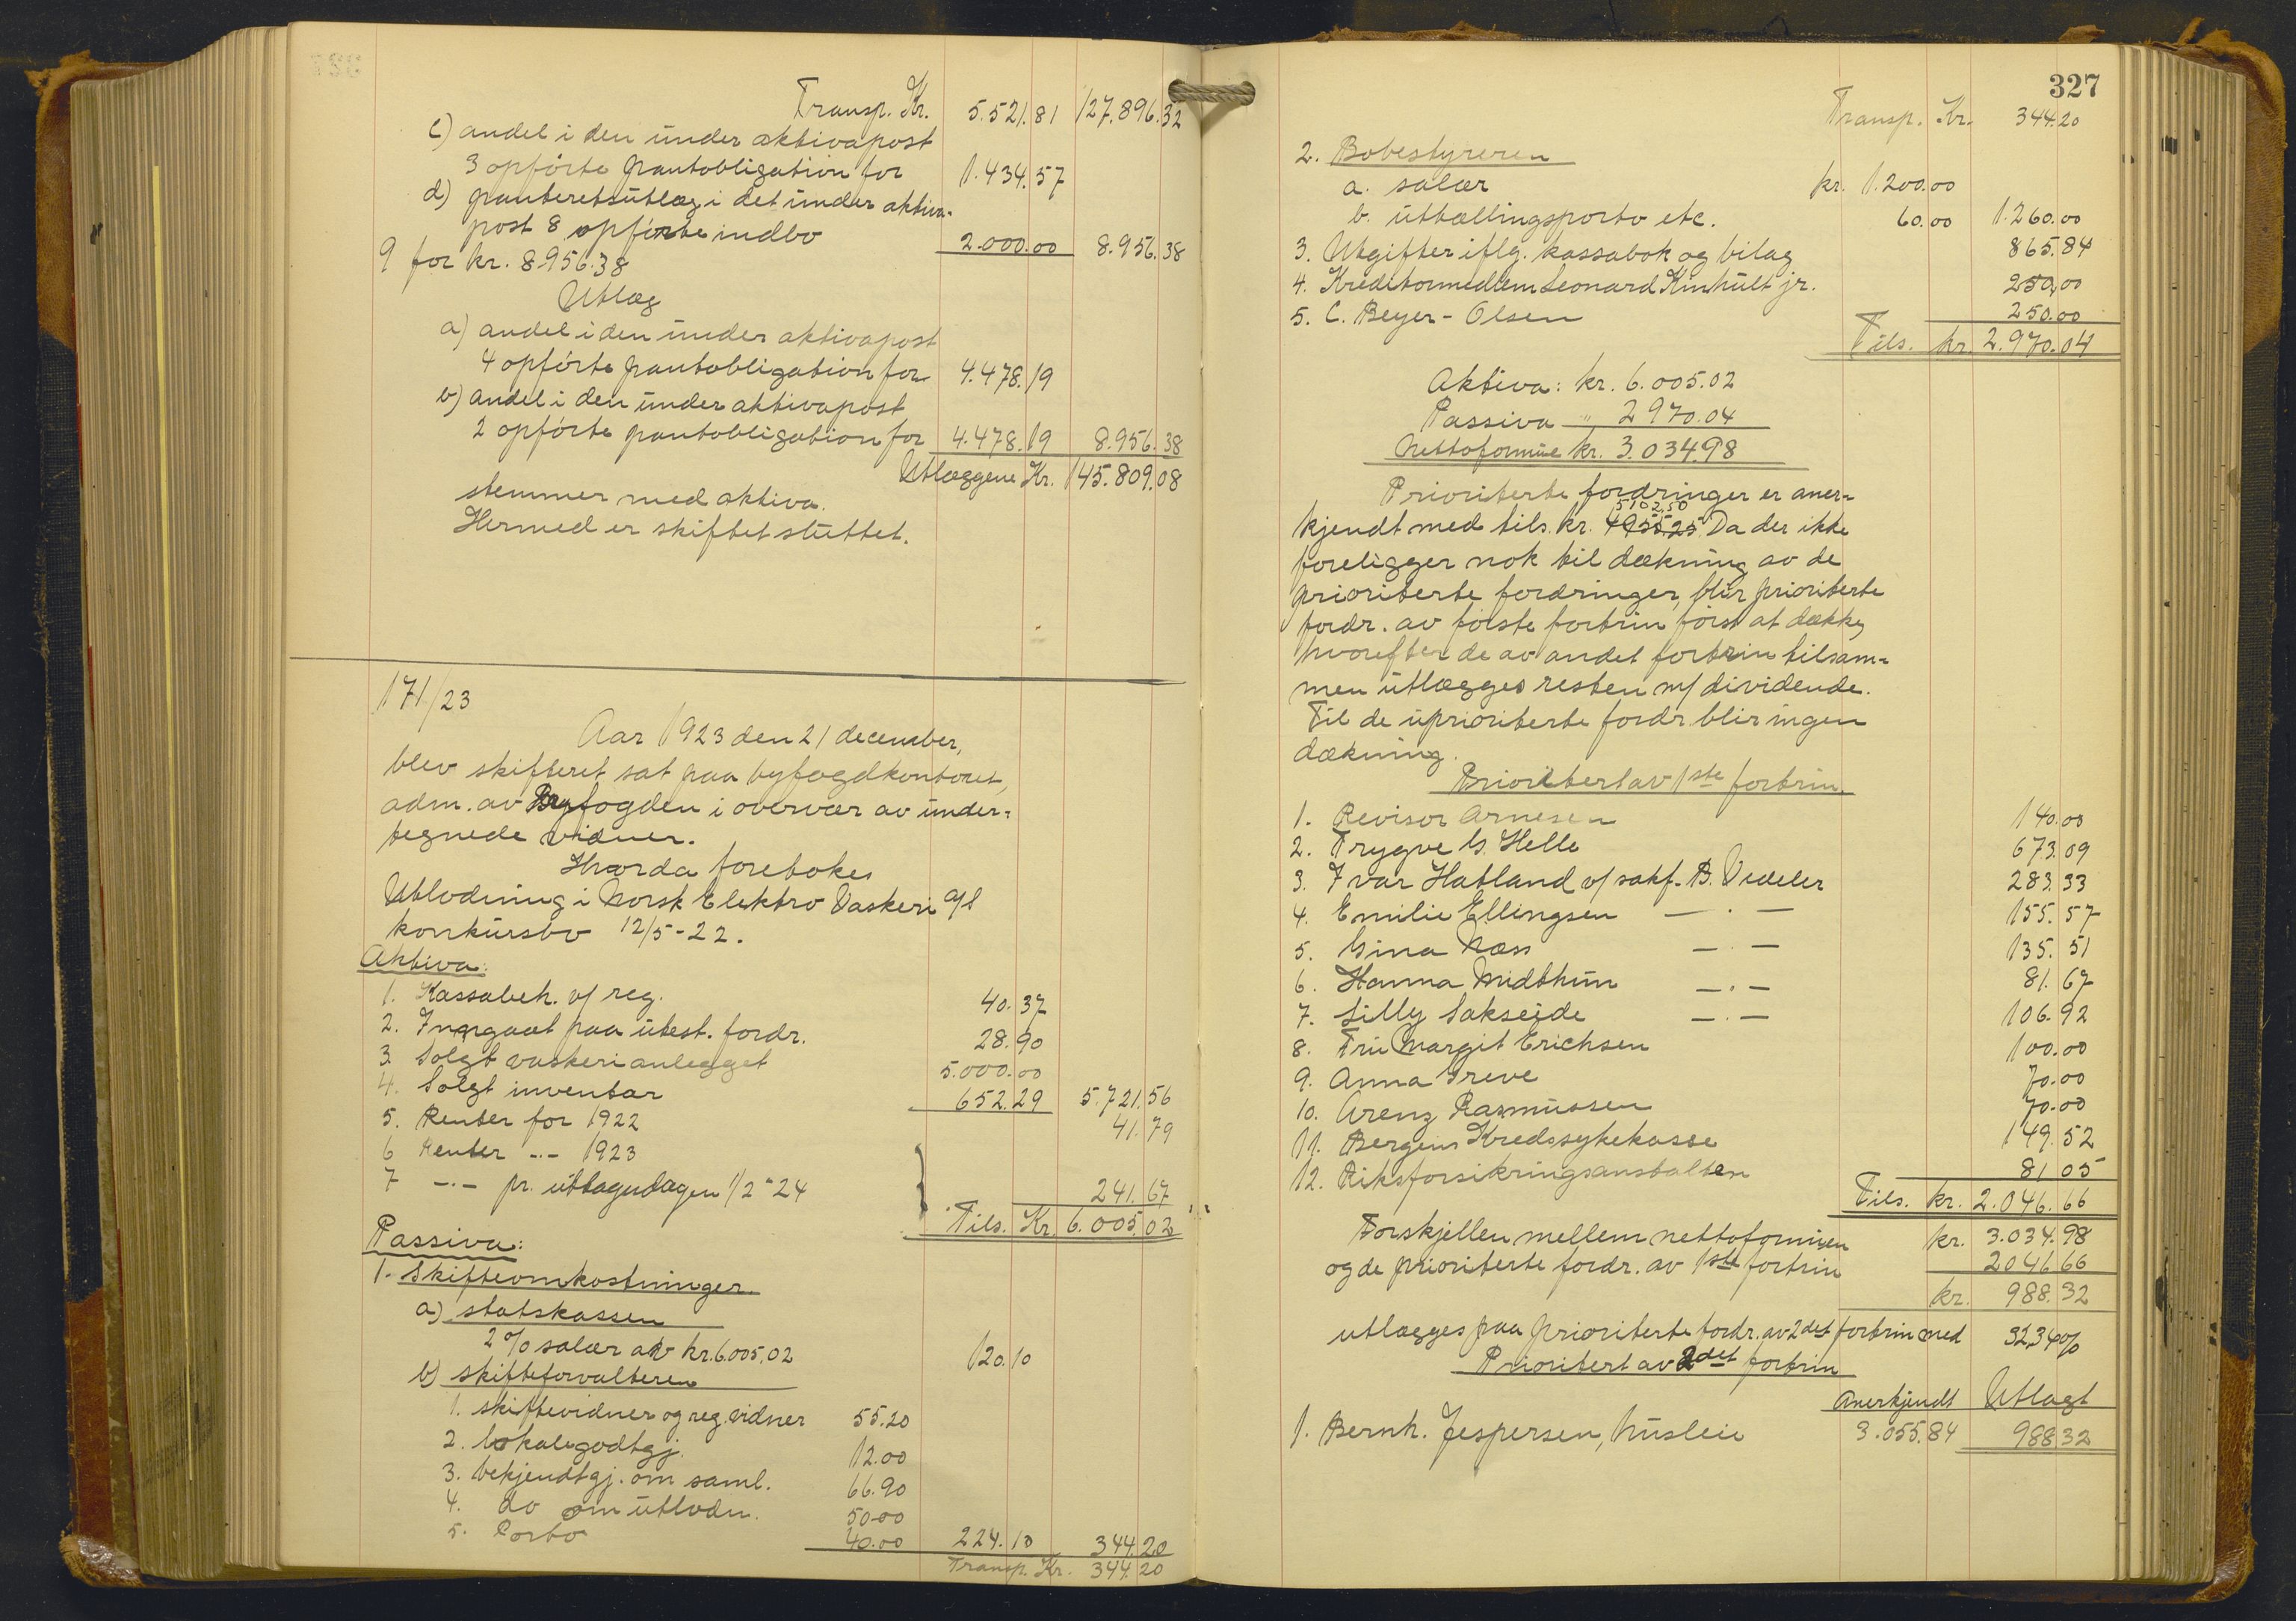 Transp. Kr. 5.521.81 127.896.32
c) andel i den under aktivapost
3 opförte pantobligation for 1.434.57
d) panteretsutlæg i det under aktiva-
post 8 opförte indbo 2.000.00 8.956.38
9 for kr. 8956.38
Utlæg
a) andel i den under aktivapost
4 opförte pantobligation for 4.478.19
b) andel i den under aktivapost
2 opförte pantobligation for 4.478.19 8.956.38
Utlæggene Kr. 145.809.08
stemmer med aktiva.
Hermed er skiftet sluttet.
171/23
Aar 1923 den 21 december,
blev skifteret sat paa byfogdkontoret,
adm. av Byfogden i overvær av under-
tegnede vidner.
Hvorda foretokes
Utlodning i Norsk Elektro Vaskeri a/s
konkursbo 12/5-22.
Aktiva:
1. Kassabeh. v/ reg. 40.37
2. Inngaat paa utest. fordr. 28.90
3. Solgt vaskerianlegget 5.000.00
4. Solgt inventar 652.29 5.721.56
5. Renter for 1922 41.79
6 Renter -"- 1923
7 -"- pr. utlagudagen 1/2-24 241.67
Tils. Kr. 6.005.02
Passiva:
1. Skifteomkostninger.
a) statskassen
2% salær av kr. 6.005.02 120.10
b) skifteforvalteren
1. skiftevidner og reg. vidner 55.20
2. lokalegodtgj. 12.00
3. bekjendtgj. om saml. 66.90
4. do om utlodn. 50.00
5. Porto 40.00 224.10 344.20
Transp. Kr. 344.20
327
Transp. Kr. 344.20
2. Bobestyreren
a. salær kr. 1.200.00
b. uttællingsporto etc. 60.00 1.260.00
3. Utgifter iflg. kassabok og bilag 865.84
4. Kreditormedlem Leonard Kinhult jr. 250.00
5. C. Beyer-Olsen 250.00
Tils. kr. 2.970.04
Aktiva: kr. 6.005.02
Passiva " 2970.04
Nettoformue kr. 3.034.98
Prioriterte fordringer er aner-
5102.50
kjendt med tils. kr. 4955.25 Da der ikke
foreligger nok til dækning av de
prioriterte fordringer, blir prioriterte
fordr. av förste fortrin först at dække,
hvorefter de av andet fortrin tilsam-
men utlægges resten m/ dividende.
Til de uprioriterte fordr. blir ingen
dækning.
Prioritert av 1ste fortrin.
1. Revisor Arnesen 140.00
2. Trygve G. Helle 673.09
3. Ivar Hatland v/ sakf. B. Vedeler 283.33
4. Emilie Ellingsen —"— 155.57
5. Gina Næss —"— 135.51
6. Hanna Midthun —"— 81.67
7. Lilly Sakseide —"— 106.92
8. Fru Margit Erichsen 100.00
9. Anna Greve 70.00
10. Arenz Rasmussen 70.00
11. Bergens Kredssykekasse 149.52
12. Riksforsikringsanstalten 81.05
Tils. kr. 2.046.66
Forskjellen mellem nettoformuen kr. 3.034.98
og de prioriterte fordr. av 1ste fortrin 2046.66
kr. 988.32
utlægges paa prioriterte fordr. av 2det fortrin med 32,34%
Prioritert av 2det fortrin
Anerkjendt Utlagt
1. Bernh. Jespersen, husleie 3.055.84 988.32